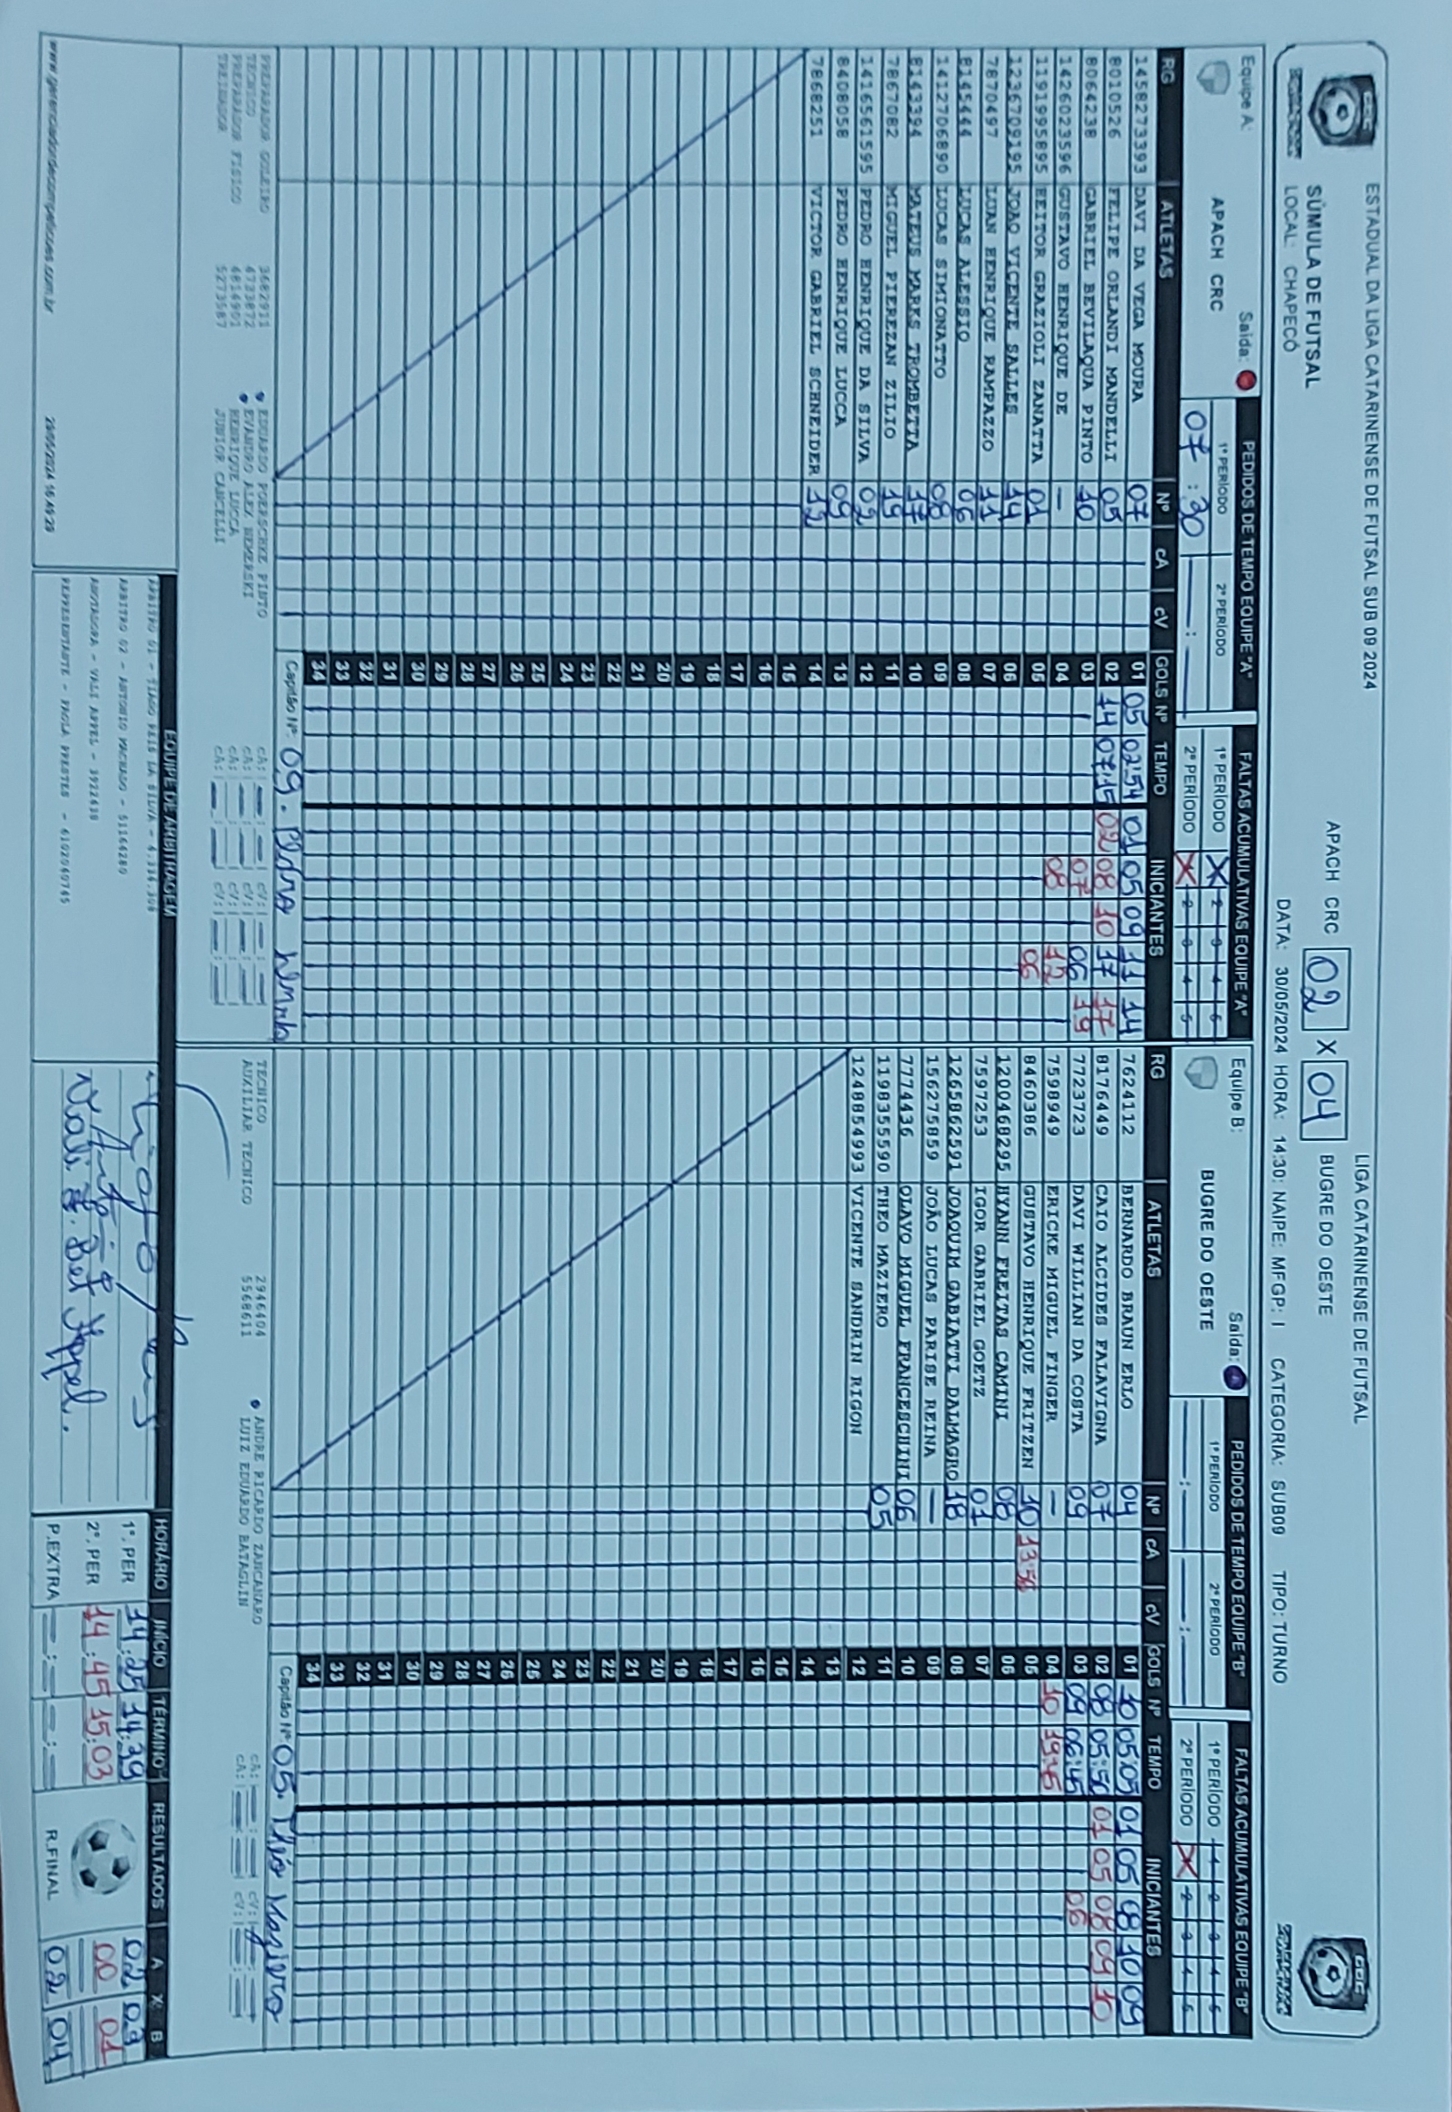 ESTADUAL DA LIGA CATARINENSE DE FUTSAL SUB 09 2024
LIGA CATARINENSE DE FUTSAL
SÚMULA DE FUTSAL
APACH CRC 02 X 04 BUGRE DO OESTE
LOCAL: CHAPECÓ
DATA: 30/05/2024 HORA: 14:30: NAIPE: MFGP: I CATEGORIA: SUB09 TIPO: TURNO
Equipe A: APACH CRC Saída:
PEDIDOS DE TEMPO EQUIPE "A"
1º PERÍODO 2º PERÍODO
07:30 —:—
FALTAS ACUMULATIVAS EQUIPE "A"
1º PERÍODO X 2 3 4 5
2º PERÍODO X 2 3 4 5
RG ATLETAS Nº CA CV GOLS Nº TEMPO INICIANTES
1458273393 DAVI DA VEGA MOURA 07 01 05 02:54 01 05 09 11 14
8010526 FELIPE ORLANDI MANDELLI 05 02 14 07:15 02 08 10 17 17
8064238 GABRIEL BEVILAQUA PINTO 10 03 07 06 19
1426023596 GUSTAVO HENRIQUE DE — 04 08 12
11919995895 HEITOR GRAZIOLI ZANATTA 01 05 06
1236709195 JOAO VICENTE SALLES 14 06
7870497 LUAN HENRIQUE RAMPAZZO 11 07
8145444 LUCAS ALESSIO 06 08
14127706890 LUCAS SIMIONATTO 08 09
8143394 MATEUS MARKS TROMBETTA 17 10
7867082 MIGUEL PIEREZAN ZILIO 19 11
1416561595 PEDRO HENRIQUE DA SILVA 02 12
8408058 PEDRO HENRIQUE LUCCA 09 13
7868251 VICTOR GABRIEL SCHNEIDER 12 14
15
16
17
18
19
20
21
22
23
24
25
26
27
28
29
30
31
32
33
34
Capitão Nº: 09.
PREPARADOR GOLEIRO 3682911 EDUARDO POERSCHKE PINTO CA: CV:
TECNICO 4733872 EVANDRO ALEX NEMERSKI CA: CV:
PREPARADOR FISICO 6814901 HENRIQUE LUCCA CA: CV:
TREINADOR 5273587 JUNIOR CANCELLI CA: CV:
Equipe B: BUGRE DO OESTE Saída:
PEDIDOS DE TEMPO EQUIPE "B"
1º PERÍODO 2º PERÍODO
—:— —:—
FALTAS ACUMULATIVAS EQUIPE "B"
1º PERÍODO 1 2 3 4 5
2º PERÍODO X 2 3 4 5
RG ATLETAS Nº CA CV GOLS Nº TEMPO INICIANTES
7624112 BERNARDO BRAUN ERLO 04 01 10 05:05 01 05 08 10 09
8176449 CAIO ALCIDES FALAVIGNA 07 02 08 05:50 01 05 08 09 10
7723723 DAVI WILLIAN DA COSTA 09 03 09 06:45 06
7598949 ERICKE MIGUEL FINGER — 04 10
8460386 GUSTAVO HENRIQUE FRITZEN 10 13:50 05
1200468295 HYANN FREITAS CAMINI 08 06
7597253 IGOR GABRIEL GOETZ 01 07
12658625911 JOAQUIM GABIATTI DALMAGRO 18 08
156275859 JOÃO LUCAS PARISE REINA — 09
7774436 OLAVO MIGUEL FRANCESCHINI 06 10
1198355590 THEO MAZIERO 05 11
12488854993 VICENTE SANDRIN RIGON 12
13
14
15
16
17
18
19
20
21
22
23
24
25
26
27
28
29
30
31
32
33
34
Capitão Nº: 05.
TECNICO 2946404 ANDRE RICARDO ZANCANARO CA: CV:
AUXILIAR TECNICO 5568611 LUIZ EDUARDO BATAGLIN CA: CV:
EQUIPE DE ARBITRAGEM
ARBITRO 02 - ANTONIO MACHADO - 51164280
ANOTADORA - VALI APPEL - 3922638
REPRESENTANTE - PAOLA PRESTES - 6102040765
HORÁRIO INICIO TERMINO RESULTADOS A X B
1º. PER 14:25 14:39 02 03
2º. PER 14:45 15:03 00 01
P.EXTRA —:— —:—
R.FINAL 02 04
www.gerenciadordecompeticoes.com.br